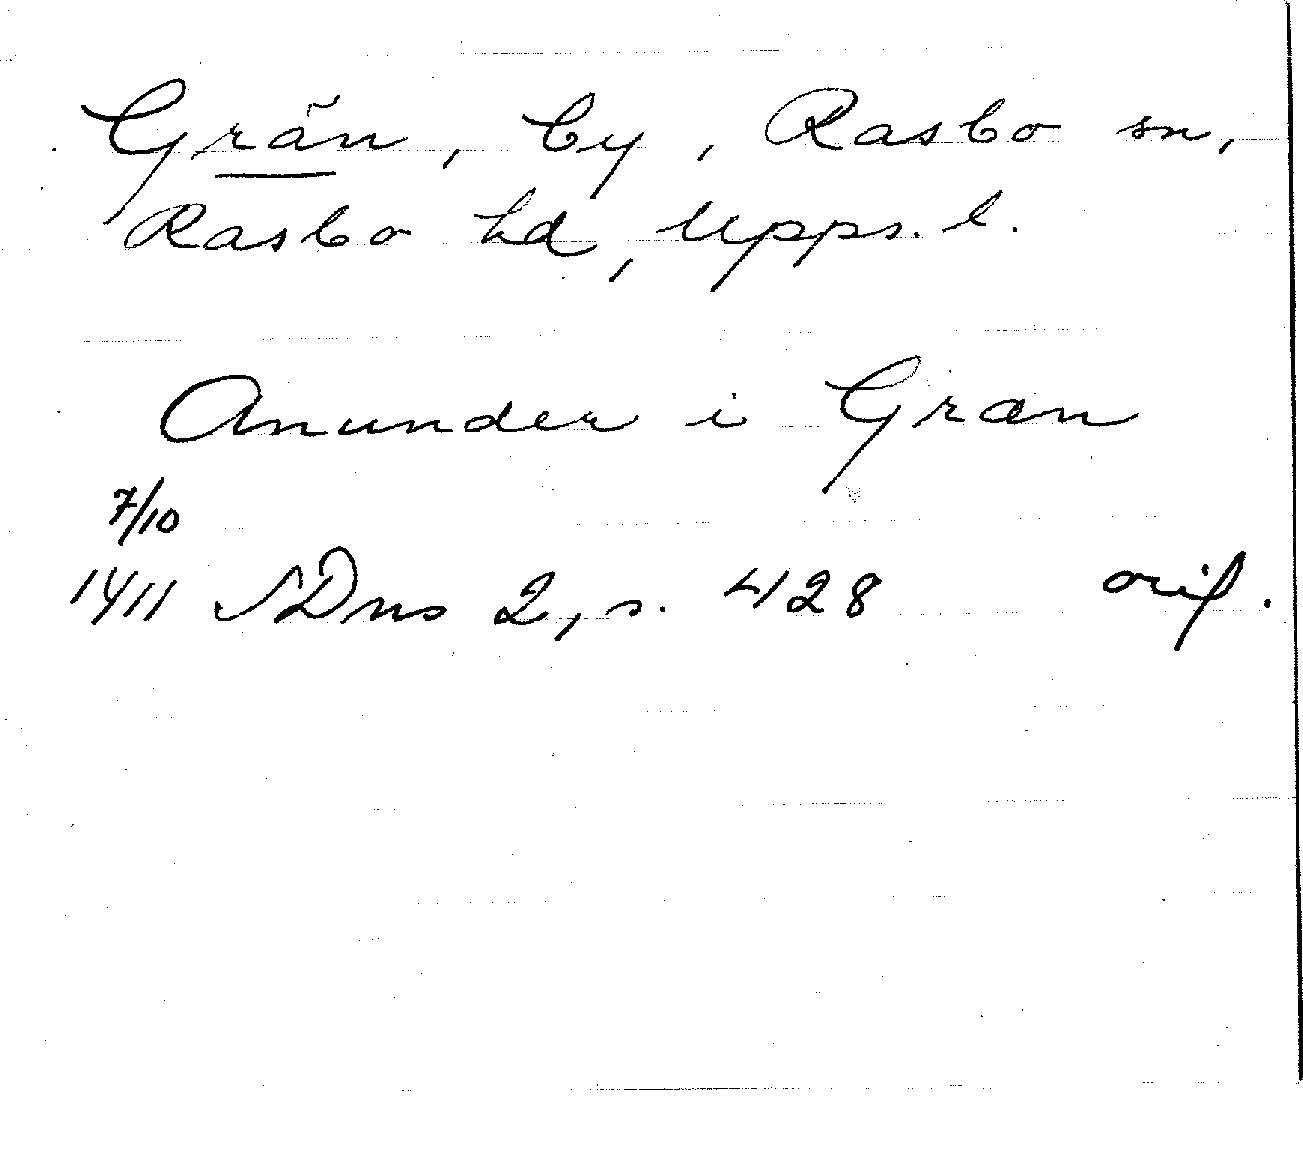 Grän, by, Rasbo sn,
Rasbo hd, Upps. l.
Anunder i Græn
7/10
1411 SDns 2, s. 428 orig.